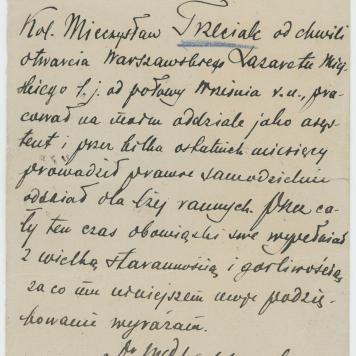 Kol. Mieczysław Trzeciak od chwili
otwarcia Warszawskiego Lazaretu Miej-
skiego t. j. od połowy Września r. u., pra-
cował na moim oddziale jako asys-
tent i przez kilka ostatnich miesięcy
prowadził prawie samodzielnie
oddział dla lżej rannych. Przez ca-
ły ten czas obowiązki swe wypełniał
z wielką starannością i gorliwością
za co mu niniejszem moje podzię-
kowanie wyrażam.
Dr med.